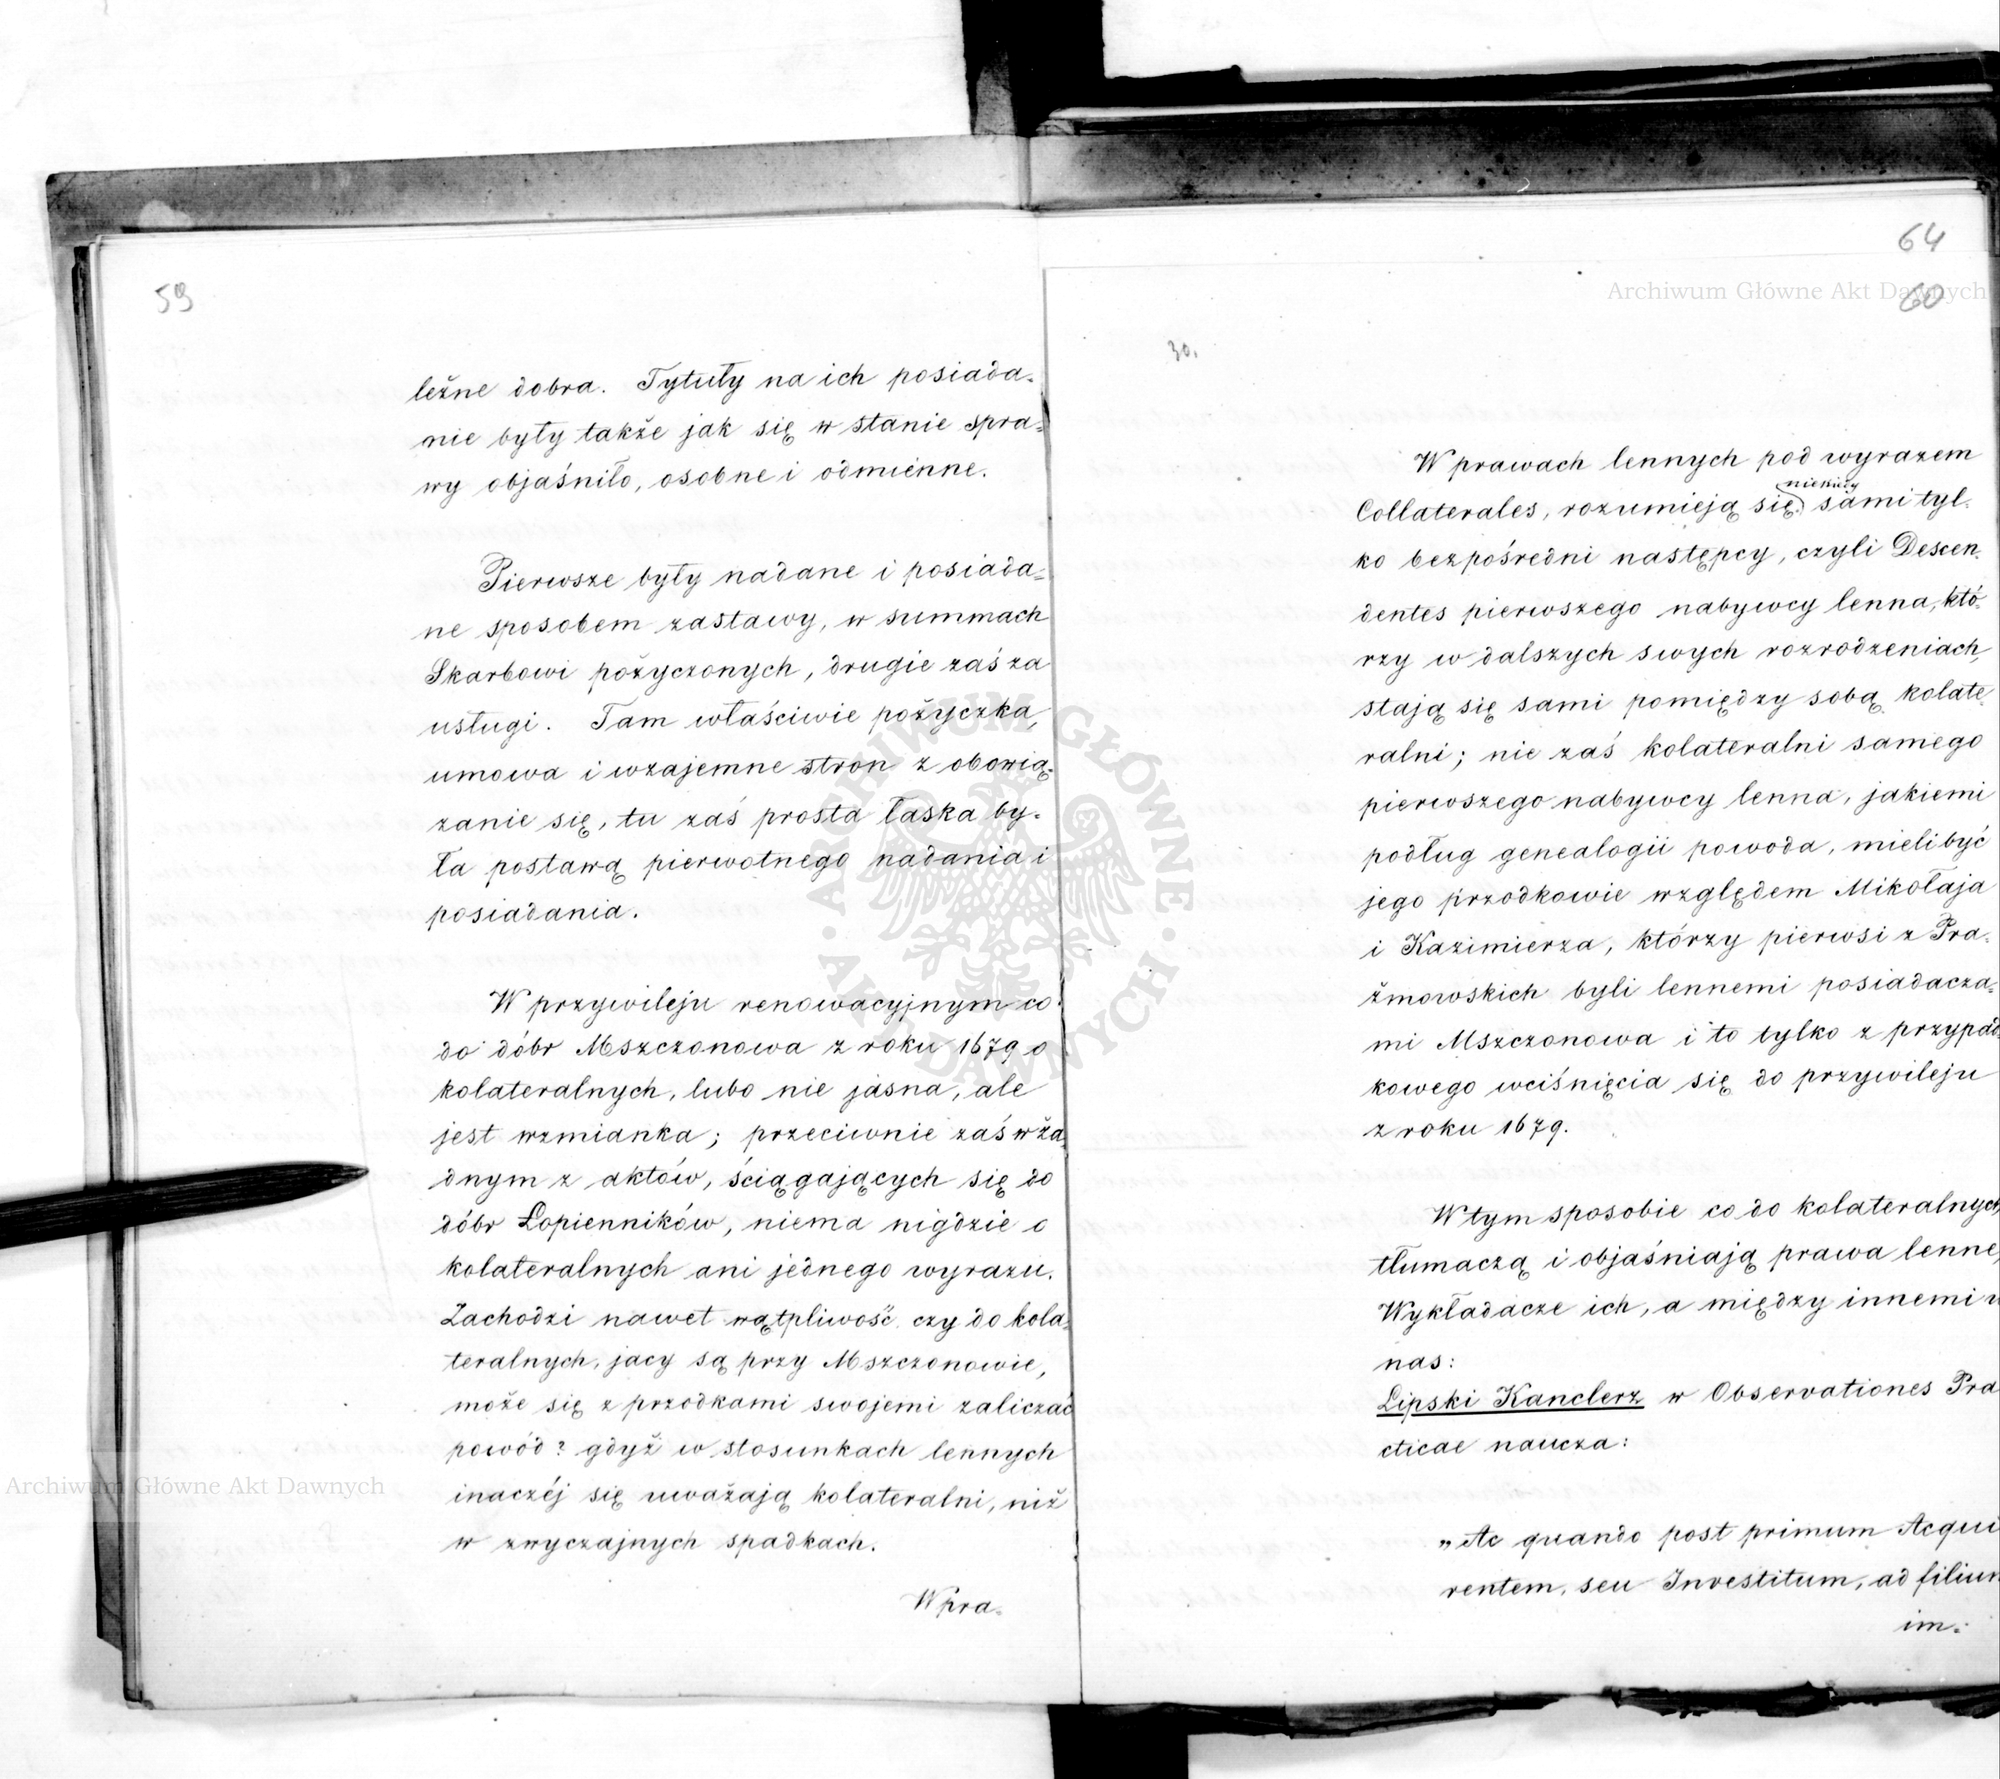 59
leżne dobra. Tytuły na ich posiada-
nie były także jak się w stanie spra-
wy objaśniło, osobne i odmienne.
Pierwsze były nadane i posiada-
ne sposobem zastawy, w summach
Skarbowi pożyczonych, drugie zaś za
usługi. Tam właściwie pożyczka,
umowa i wzajemne stron zobowią-
zanie się, tu zaś prosta łaska by-
ła postawą pierwotnego nadania i
posiadania.
W przywileju renowacyjnym co
do dóbr Mszczonowa z roku 1679 o
kolateralnych, lubo nie jasna, ale
jest wzmianka; przeciwnie zaś w ża-
dnym z aktów, ściągających się do
dóbr Łopienników, niema nigdzie o
kolateralnych ani jednego wyrazu.
Zachodzi nawet wątpliwość czy do kola-
teralnych, jacy są przy Mszczonowie,
może się z przodkami swojemi zaliczać
powód? gdyż w stosunkach lennych
inaczéj się uważają kolateralni, niż
w zwyczajnych spadkach.
W pra-
64
60
30.
W prawach lennych pod wyrazem
Collaterales, rozumieją się sami tyl-
ko bezpośredni następcy, czyli Descen-
dentes pierwszego nabywcy lenna, któ-
rzy w dalszych swych rozrodzeniach,
stają się sami pomiędzy sobą kolate-
ralni; nie zaś kolateralni samego
pierwszego nabywcy lenna, jakiemi
podług genealogii powoda, mieli być
jego przodkowie względem Mikołaja
i Kazimierza, którzy pierwsi z Pra-
żmowskich byli lennemi posiadacza-
mi Mszczonowa i to tylko z przypad-
kowego wciśnięcia się do przywileju
z roku 1679.
W tym sposobie co do kolateralnych,
tłumaczą i objaśniają prawa lenne,
Wykładacze ich, a między innemi u
nas:
Lipski Kanclerz w Observationes Pra
cticae naucza:
„Ac quando post primum Acqui
rentem, seu Investitum, ad filium
im-
Archiwum Główne Akt Dawnych
Archiwum Główne Akt Dawnych
· ARCHIWUM GŁÓWNE · AKT DAWNYCH